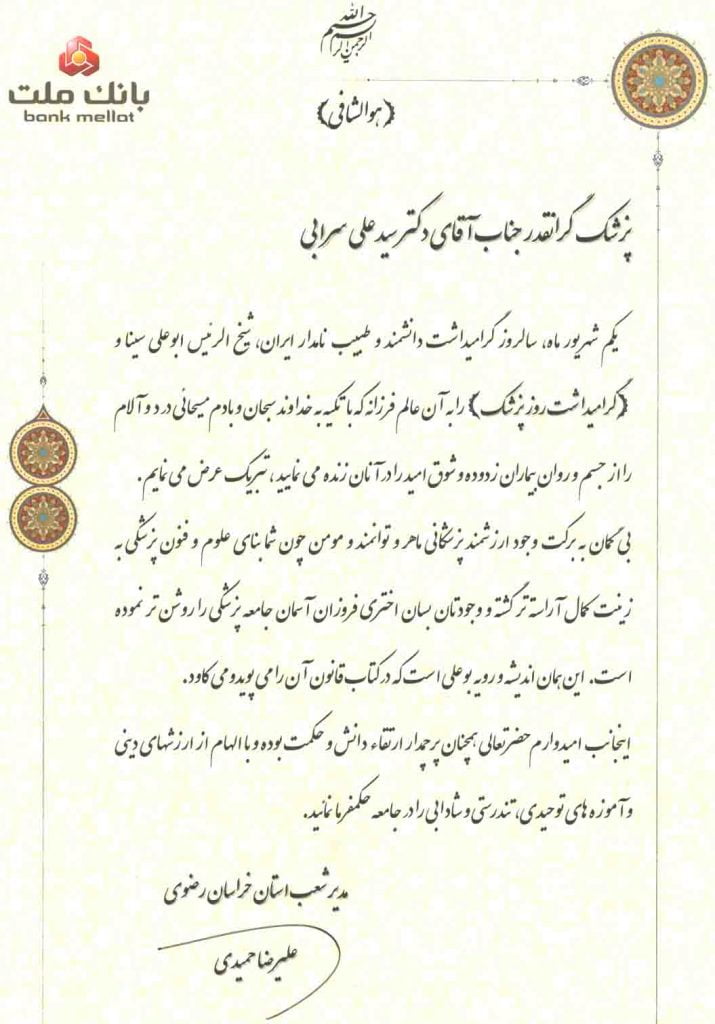 بسم الله الرحمن الرحیم
بانک ملت
bank mellat
﴿هوالشافی﴾
پزشک گرانقدر جناب آقای دکتر سید علی سرابی
یکم شهریور ماه، سالروز گرامیداشت دانشمند و طبیب نامدار ایران، شیخ الرئیس ابوعلی سینا و
﴿گرامیداشت روز پزشک﴾ را به آن عالم فرزانه که با تکیه به خداوند سبحان و با دم مسیحائی درد و آلام
را از جسم و روان بیماران زدوده و شوق امید را در آنان زنده می نمایید، تبریک عرض می نمایم.
بی گمان به برکت وجود ارزشمند پزشکانی ماهر و توانمند و مومن چون شما بنای علوم و فنون پزشکی به
زینت کمال آراسته تر گشته و وجودتان بسان اختری فروزان آسمان جامعه پزشکی را روشن تر نموده
است. این همان اندیشه و رویه بوعلی است که در کتاب قانون آن را می پوید و می کاود.
اینجانب امیدوارم حضرتعالی همچنان پرچمدار ارتقاء دانش و حکمت بوده و با الهام از ارزشهای دینی
و آموزه های توحیدی، تندرستی و شادابی را در جامعه حکمفرما نمائید.
مدیر شعب استان خراسان رضوی
علیرضا حمیدی